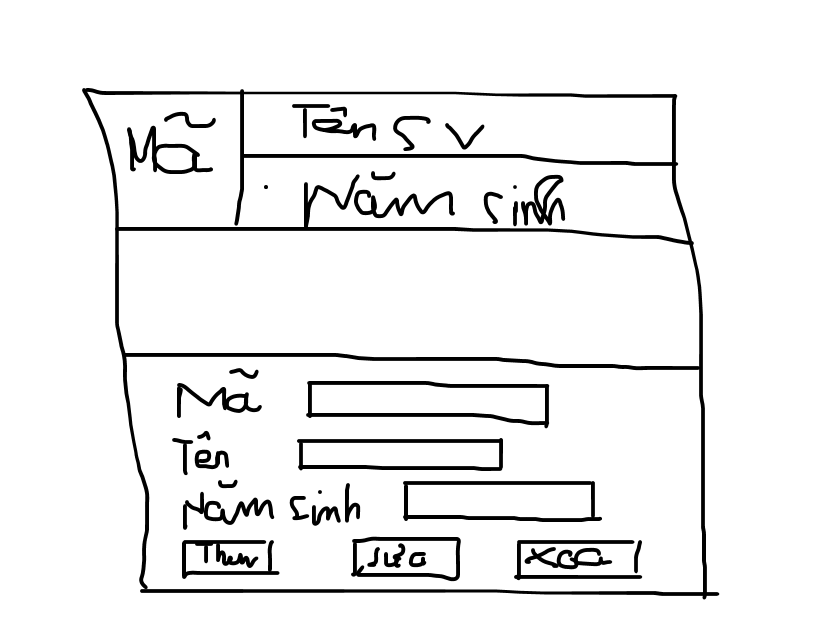 Mã
Tên SV
Năm sinh
Mã
Tên
Năm sinh
Them sưa xoa